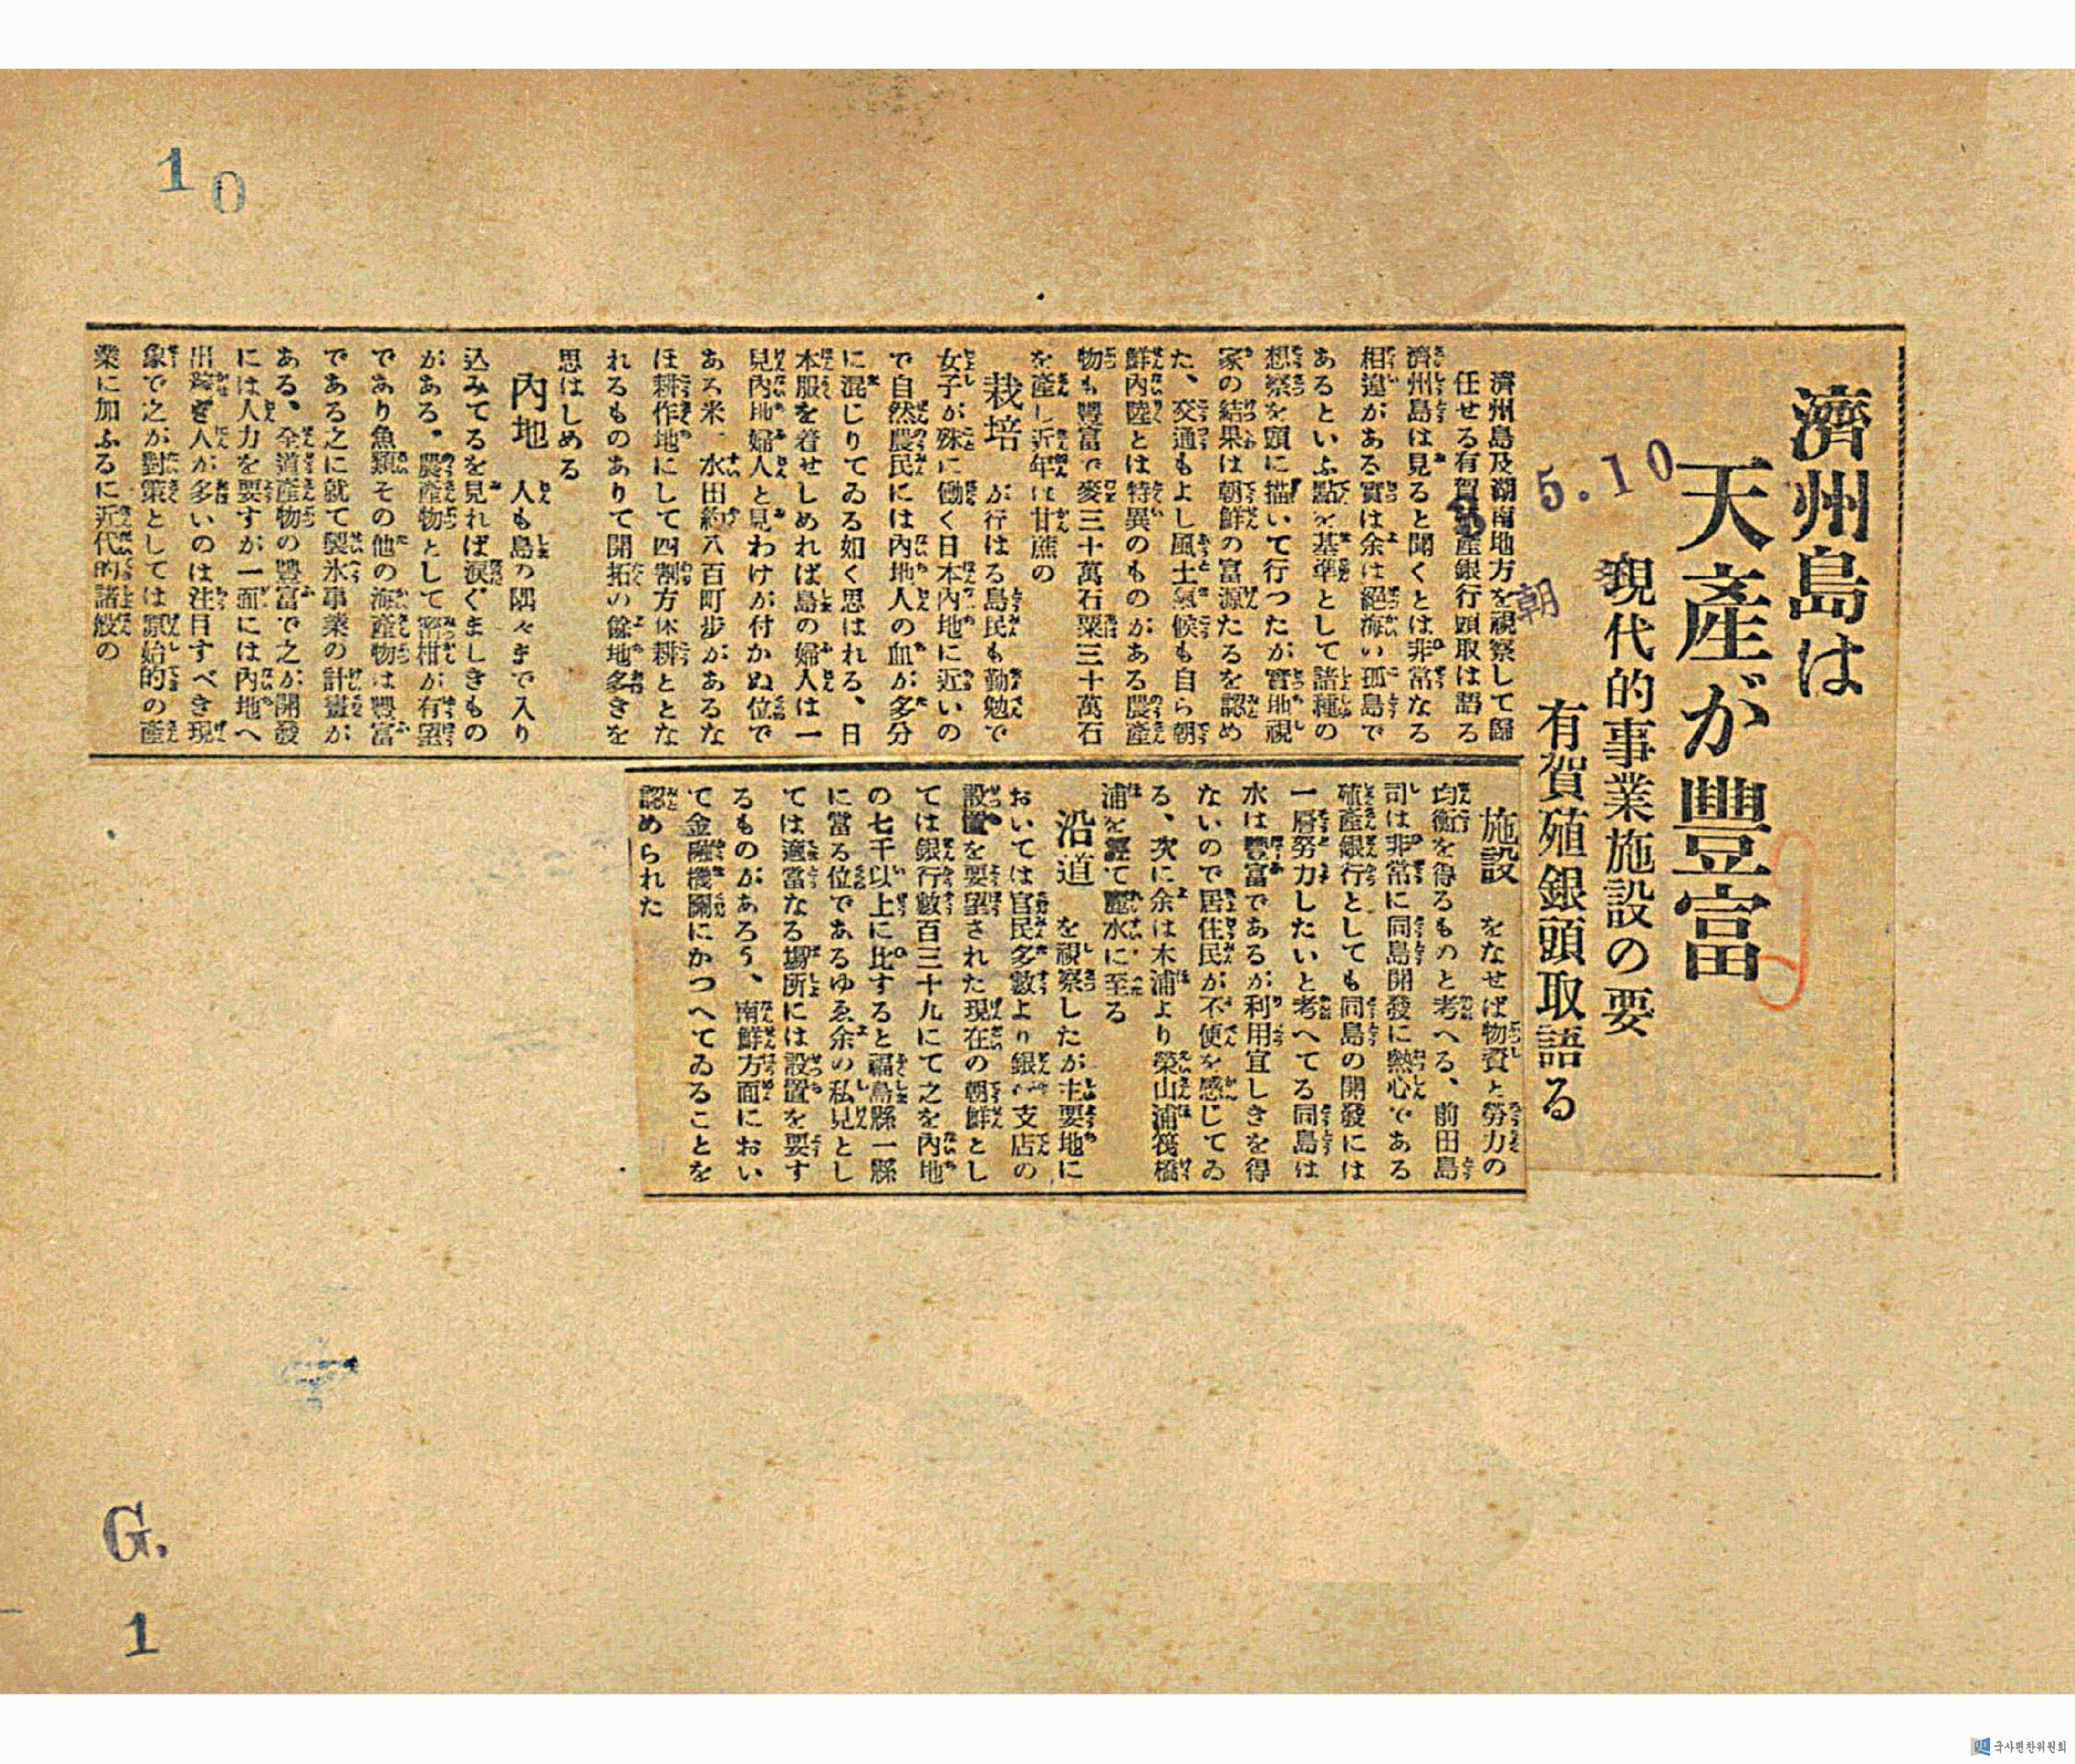 濟州島は
天產が豐富
現代的事業施設の要
有賀殖銀頭取語る
5.10
朝
濟州島及湖南地方を視察して歸
任せる有賀殖產銀行頭取は語る
濟州島は見ると聞くとは非常なる
相違がある實は余は絕海の孤島で
あるといふ點を基準として諸種の
想察を頭に描いて行つたが實地視
察の結果は朝鮮の富源たるを認め
た、交通もよし風土氣候も自ら朝
鮮內陸とは特異のものがある農產
物も豐富で麥三十萬石粟三十萬石
を產し近年は甘蔗の
栽培 が行はる島民も勤勉で
女子が殊に働く日本內地に近いの
で自然農民には內地人の血が多分
に混じりてゐる如く思はれる、日
本服を着せしめれば島の婦人は一
見內地婦人と見わけが付かぬ位で
ある米、水田約八百町歩があるな
ほ耕作地にして四割方休耕ととな
れるものありて開拓の餘地多きを
思はしめる
內地 人も島の隅々まで入り
込みてるを見れば淚ぐましきもの
がある。農產物として蜜柑が有望
であり魚類その他の海產物は豐富
である之に就て製氷事業の計畫が
ある、全道產物の豐富で之が開發
には人力を要すが一面には內地へ
出稼ぎ人が多いのは注目すべき現
象で之が對策としては原始的の產
業に加ふるに近代的諸般の
施設 をなせば物資と勞力の
均衡を得るものと考へる、前田島
司は非常に同島開發に熱心である
殖產銀行としても同島の開發には
一層努力したいと考へてる同島は
水は豐富であるが利用宜しきを得
ないので居住民が不便を感じてゐ
る、次に余は木浦より榮山浦筏橋
浦を經て麗水に至る
沿道 を視察したが主要地に
おいては官民多數より銀行支店の
設置を要望された現在の朝鮮とし
ては銀行數百三十九にて之を內地
の七千以上に比すると福島縣一縣
に當る位であるゆゑ余の私見とし
ては適當なる場所には設置を要す
るものがあらう、南鮮方面におい
て金融機關にかつへてゐることを
認められた
10
G.
1
국사편찬위원회